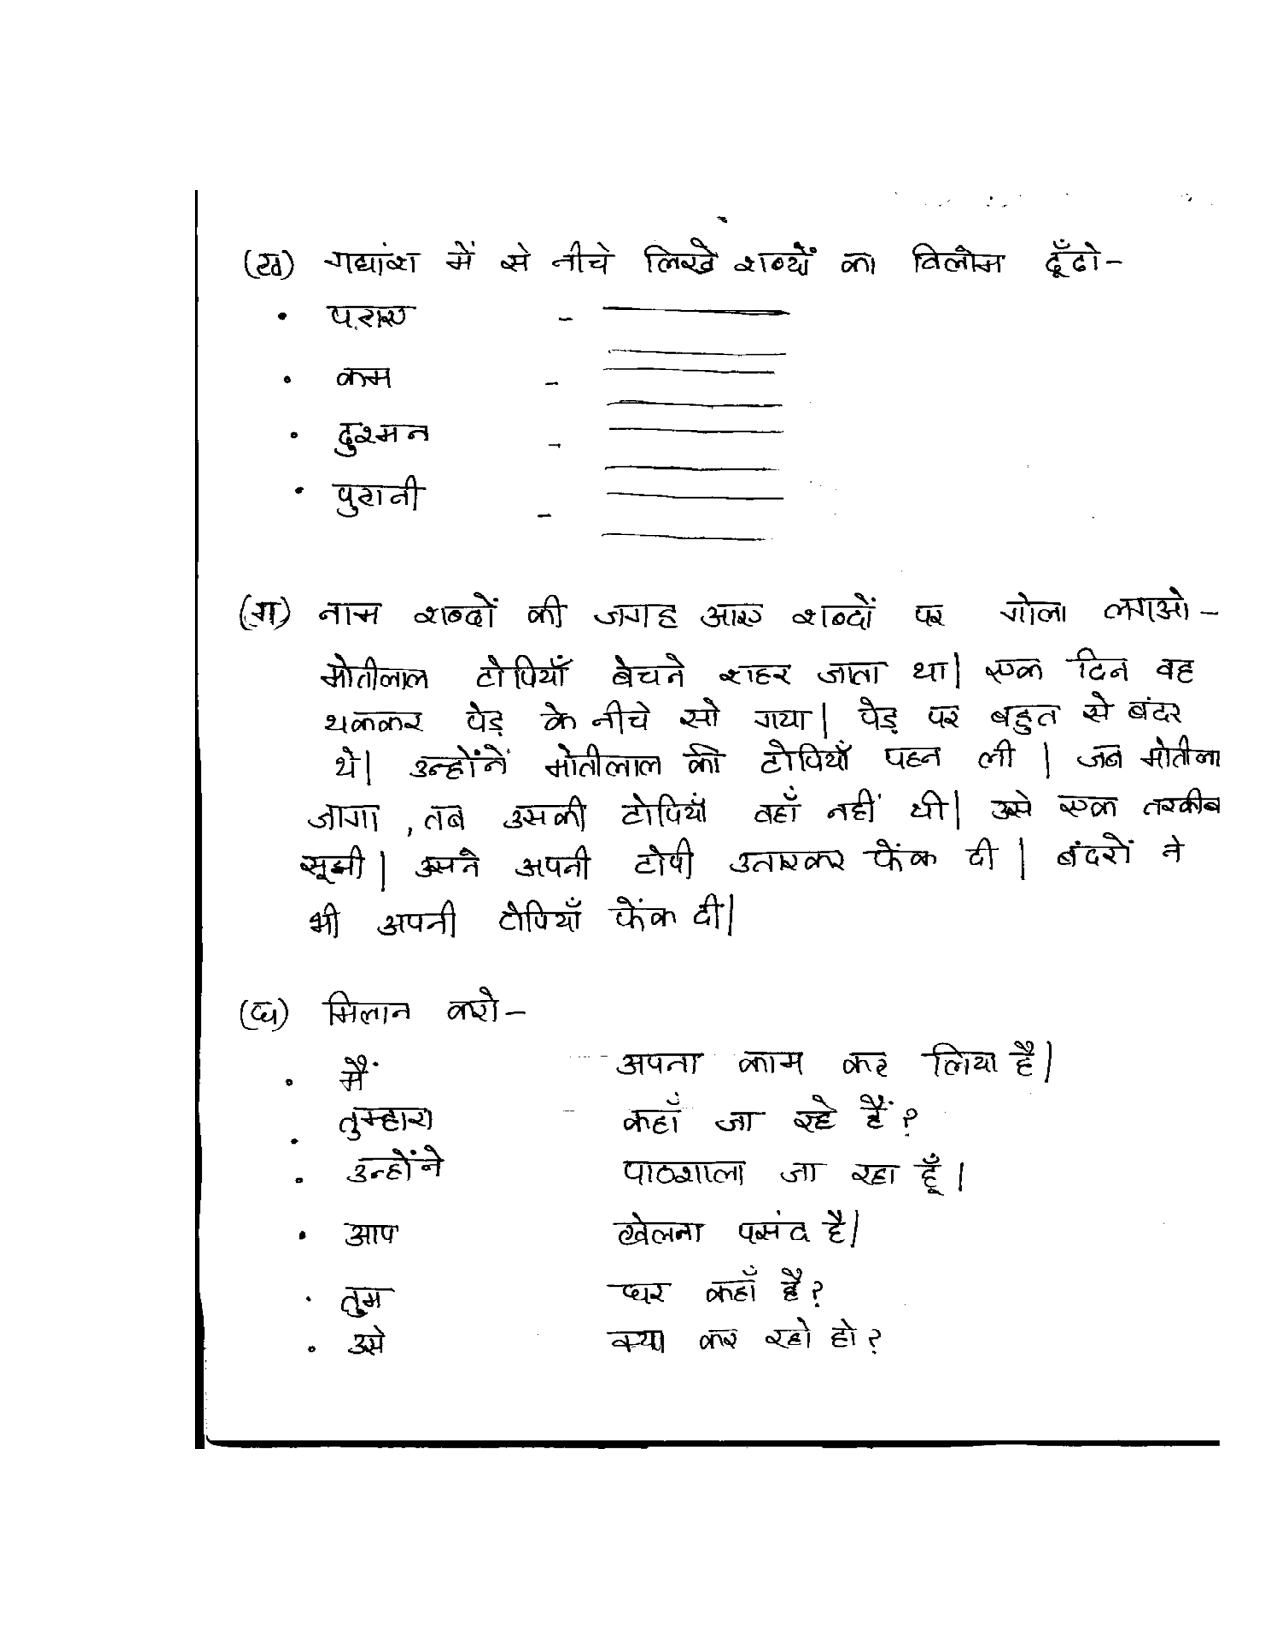 (ख) गद्यांश में से नीचे लिखे शब्दों का विलोम ढूँढो-
• पराए -
• कम -
• दुश्मन -
• पुरानी -
(ग) नाम शब्दों की जगह आए शब्दों पर गोला लगाओ-
मोतीलाल टोपियाँ बेचने शहर जाता था| एक दिन वह
थककर पेड़ के नीचे सो गया| पेड़ पर बहुत से बंदर
थे| उन्होंनें मोतीलाल की टोपियाँ पहन ली | जब मोतीला
जागा , तब उसकी टोपियाँ वहाँ नहीं थी| उसे एक तरकीब
सूझी| उसने अपनी टोपी उतारकर फेंक दी | बंदरों ने
भी अपनी टोपियाँ फेंक दी|
(घ) मिलान करो-
• मैं अपना काम कर लिया है|
• तुम्हारा कहाँ जा रहे हैं?
• उन्होंने पाठशाला जा रहा हूँ |
• आप खेलना पसंद है|
• तुम घर कहाँ है?
• उसे क्या कर रहो हो?